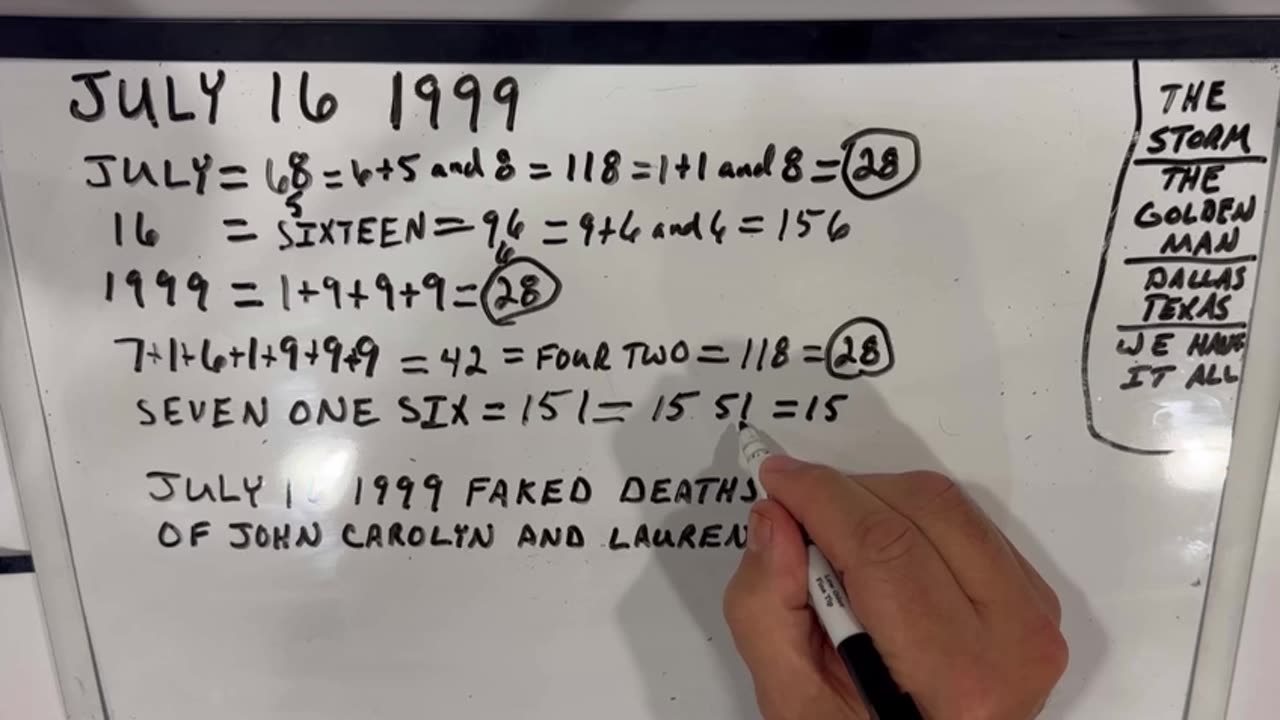 JULY 16 1999
JULY = 68 = 6+5 and 8 = 118 = 1+1 and 8 = 28
5
16 = SIXTEEN = 96 = 9+6 and 6 = 156
6
1999 = 1+9+9+9 = 28
7+1+6+1+9+9+9 = 42 = FOUR TWO = 118 = 28
SEVEN ONE SIX = 151 = 15 51 = 15
JULY 16 1999 FAKED DEATHS
OF JOHN CAROLYN AND LAUREN
THE
STORM
THE
GOLDEN
MAN
DALLAS
TEXAS
WE HAVE
IT ALL
Low Odor
Fine Tip